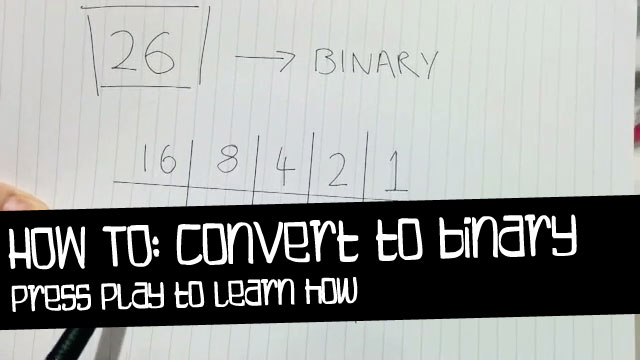 26 → BINARY
16 8 4 2 1
HOW TO: Convert to binary
Press Play to Learn how